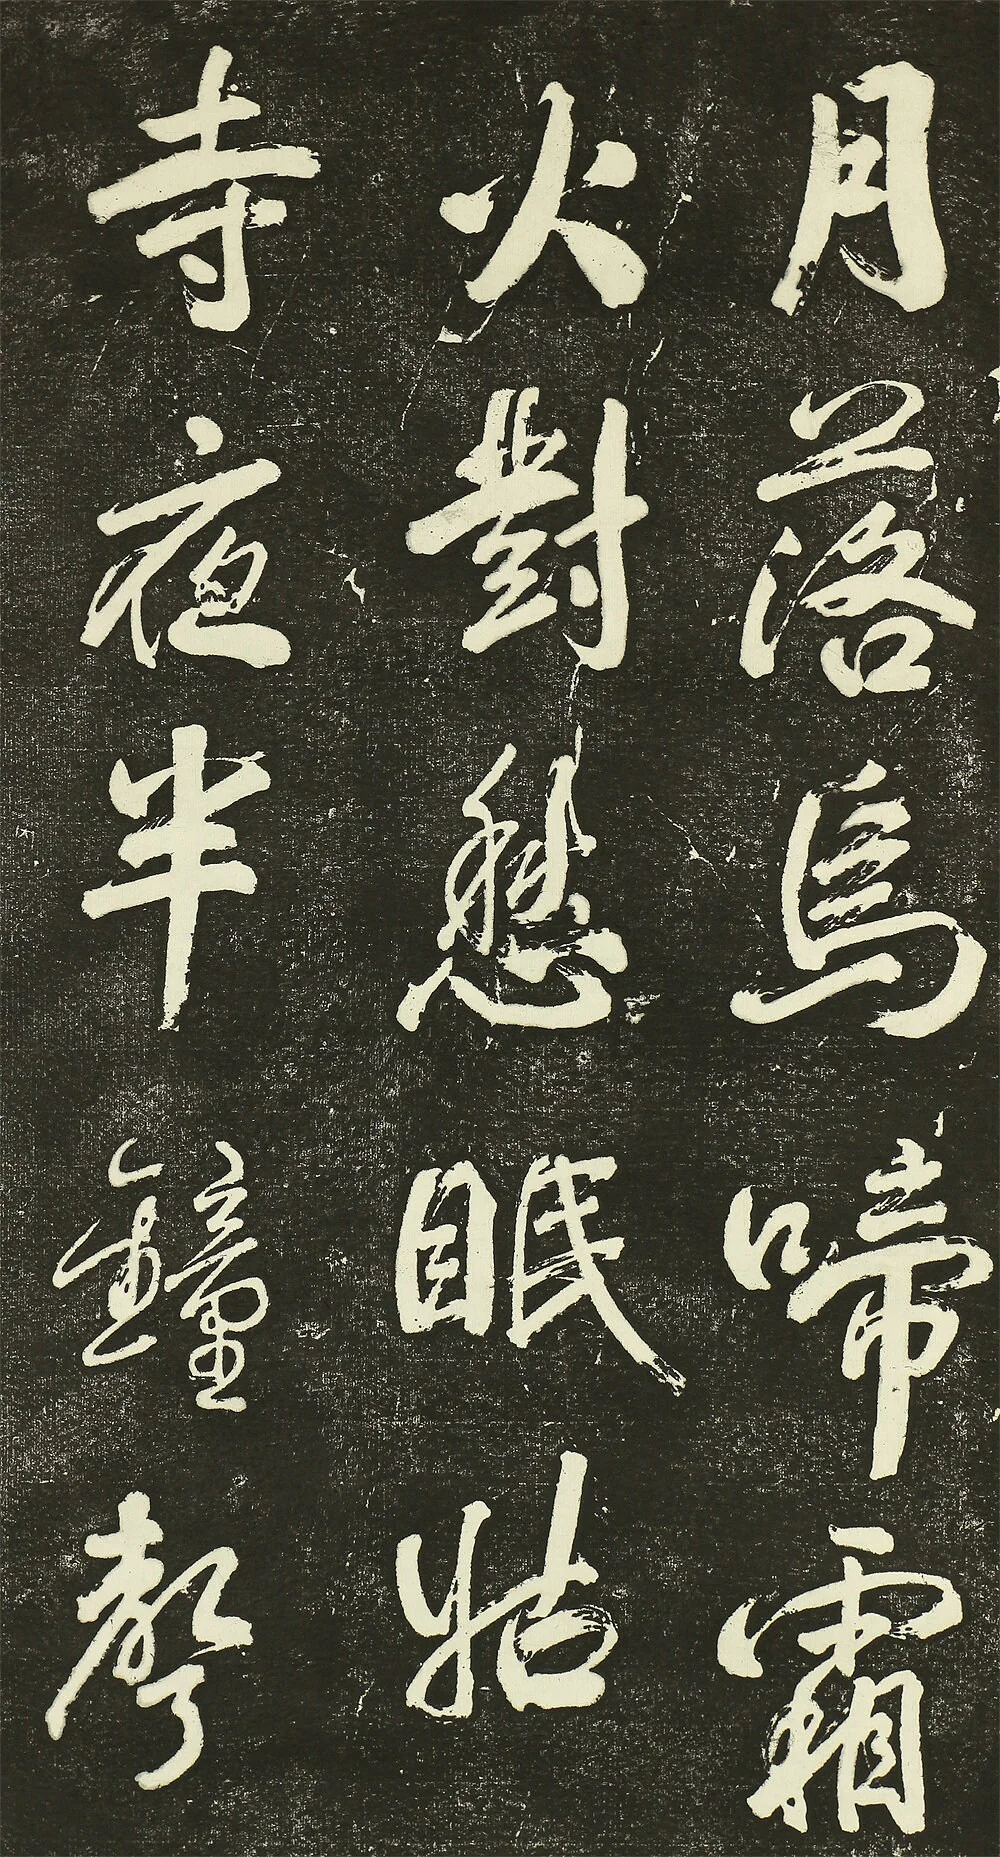 月落烏啼霜
火對愁眠姑
寺夜半鐘聲